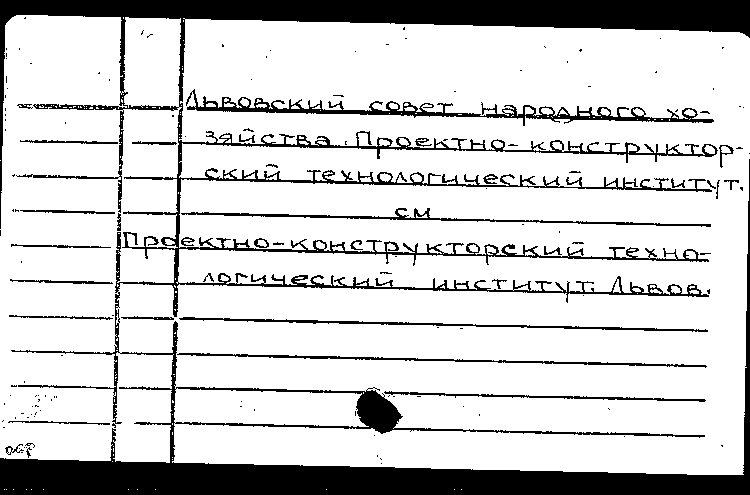 Львовский совет народного хо-
зяйства. Проектно-конструктор-
ский технологический институт.
см
Проектно-конструкторский техно-
логический институт. Львов.